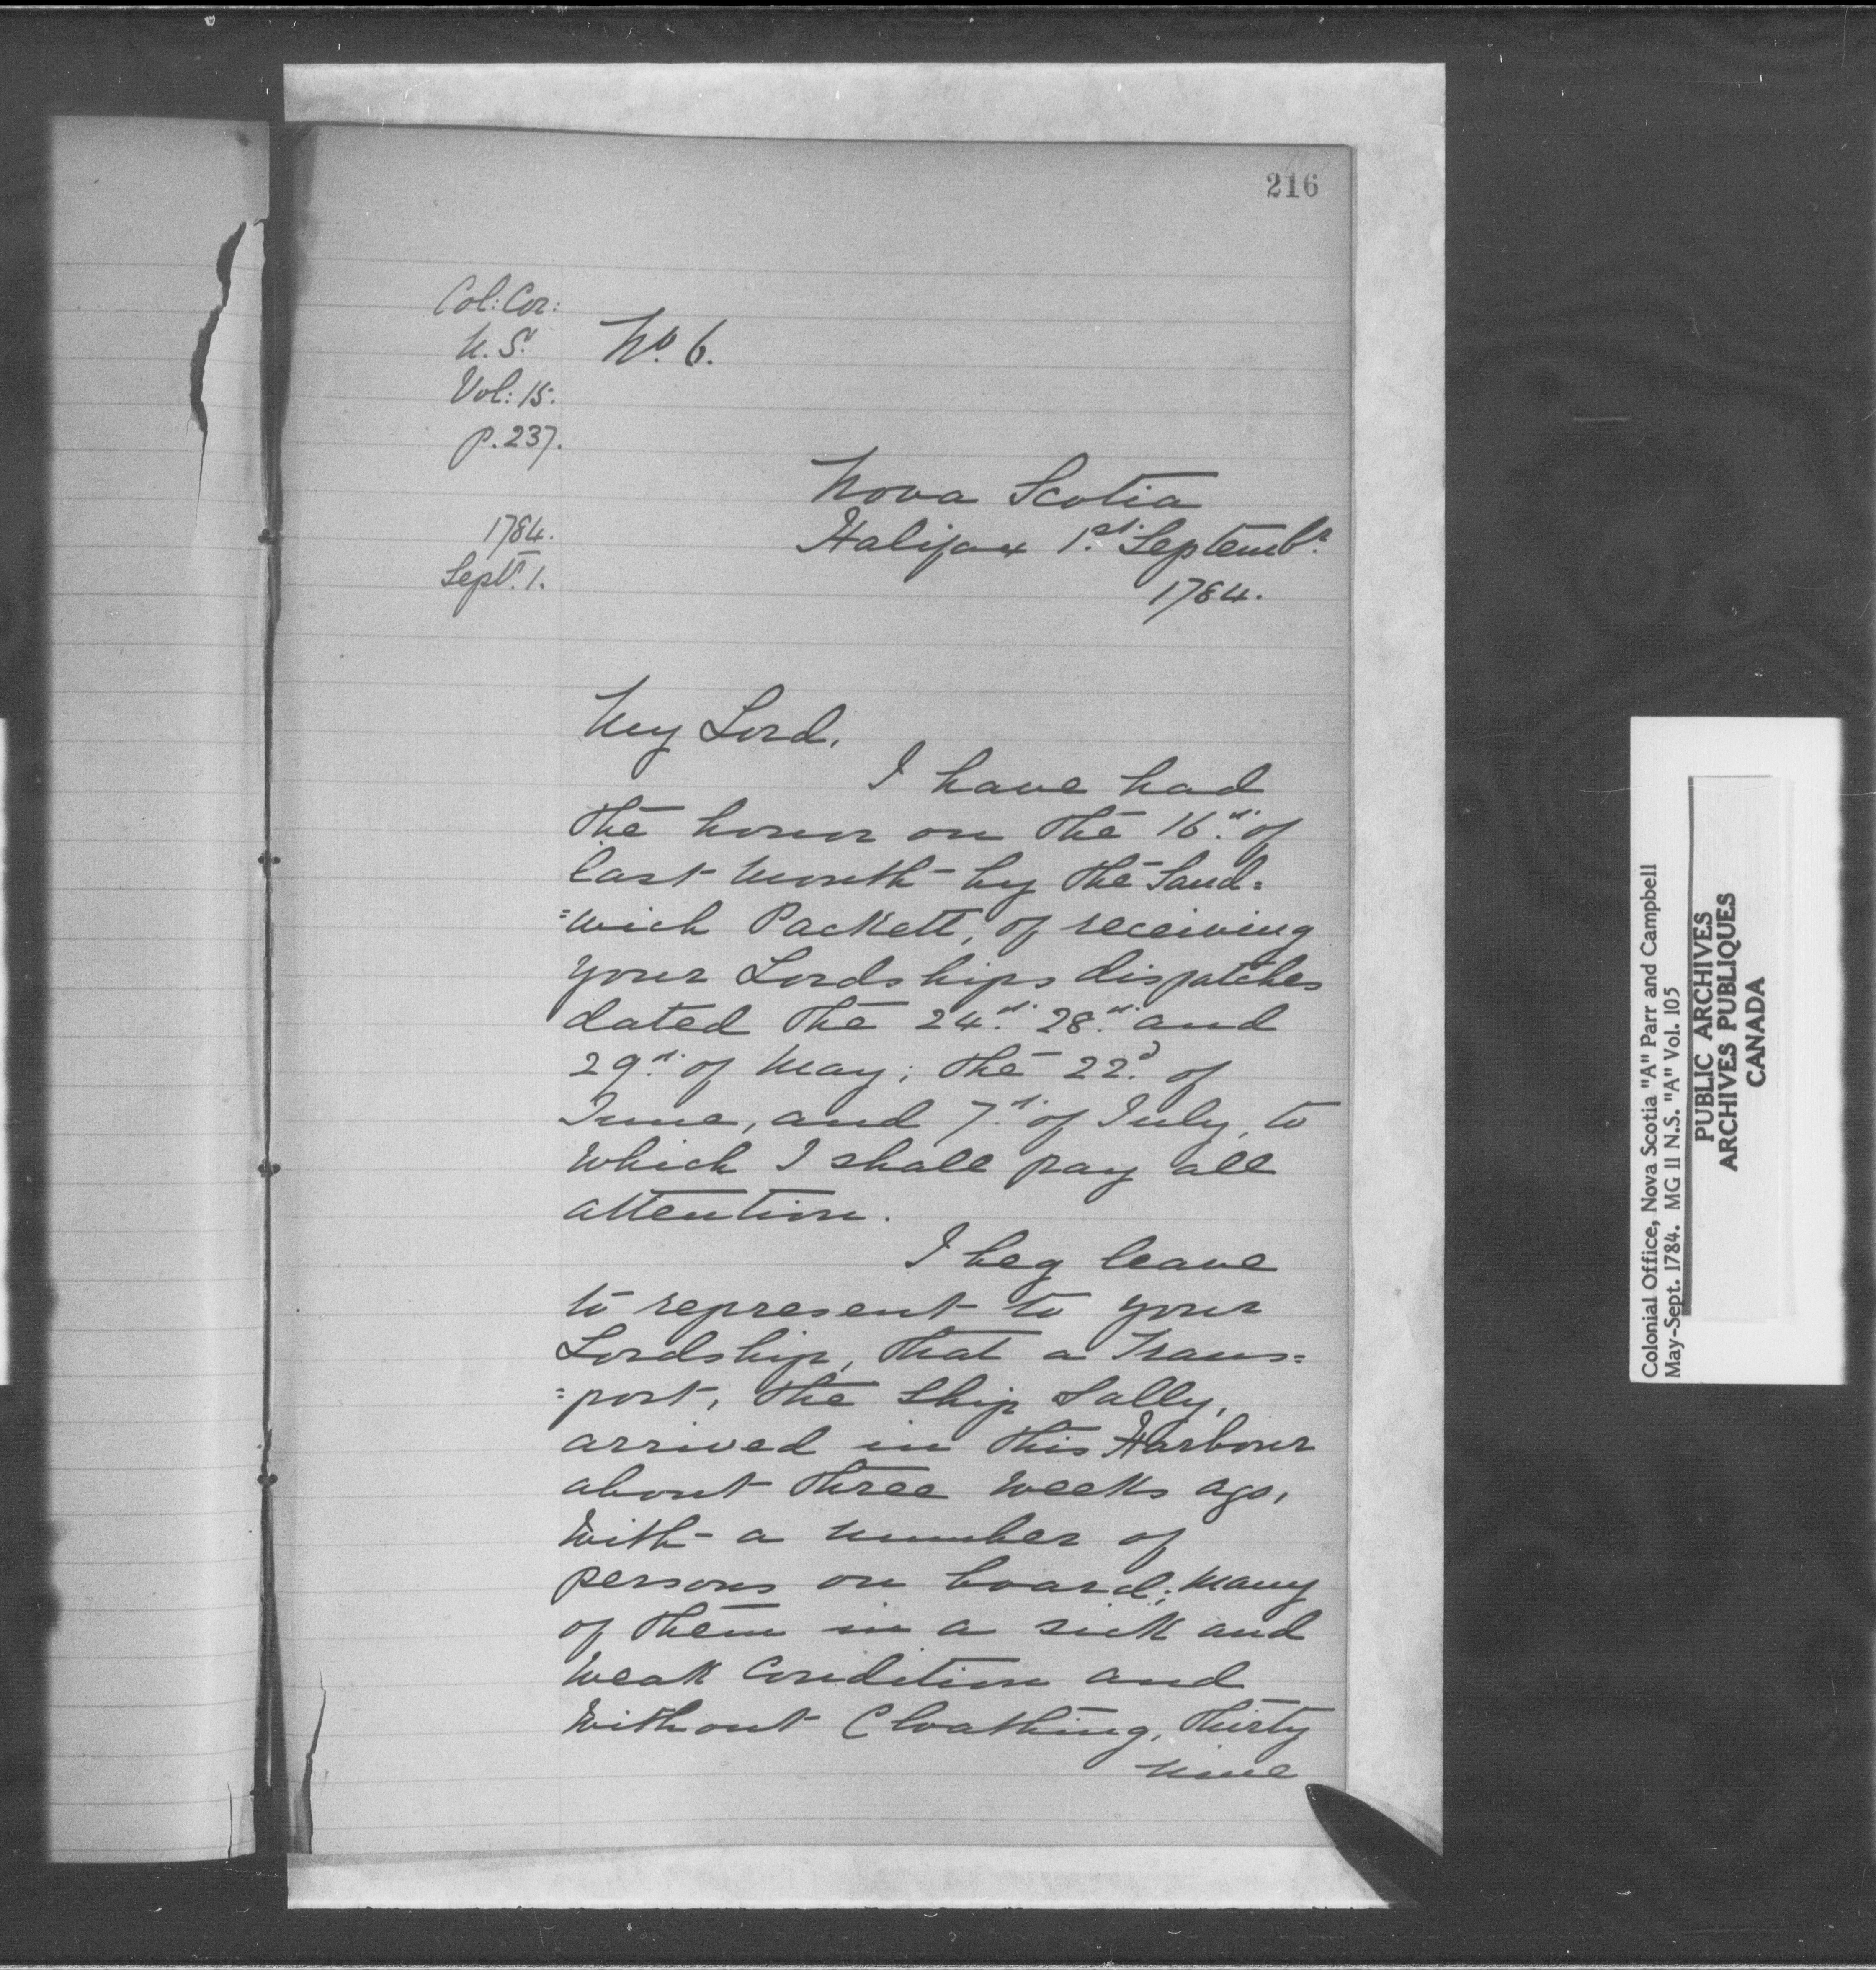 216
Col: Cor:
N. S.
Vol: 15.
p. 237.
1784.
Sept. 1.
No. 6.
Nova Scotia
Halifax 1st. Septembr.
1784.
My Lord,
I have had
the honor on the 16th. of
last month by the Sand=
=wich Packett, of receiving
your Lordships dispatches
dated the 24th. 28th. and
29th. of May; the 22d. of
June, and 7th. of July, to
which I shall pay all
attention.
I beg leave
to represent to your
Lordship, that a Trans=
=port, the Ship Sally,
arrived in this Harbour
about three weeks ago,
with a number of
persons on board; many
of them in a sick and
weak condition and
without Cloathing, thirty
nine
Colonial Office, Nova Scotia "A" Parr and Campbell
May-Sept. 1784. MG 11 N.S. "A" Vol. 105
PUBLIC ARCHIVES
ARCHIVES PUBLIQUES
CANADA